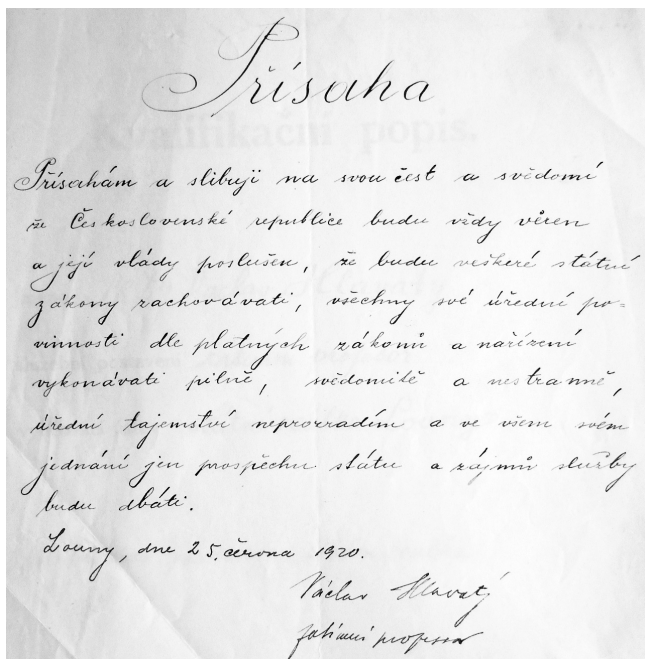 Přísaha
Kvalifikační popis.
Přísahám a slibuji na svou čest a svědomí
že Československé republice budu vždy věren
a její vlády poslušen, že budu veškeré státní
zákony zachovávati, všechny své úřední po-
vinnosti dle platných zákonů a nařízení
vykonávati pilně, svědomitě a nestranně,
úřední tajemství neprozradím a ve všem svém
jednání jen prospěchu státu a zájmů služby
budu dbáti.
Louny, dne 25. června 1920.
Václav Hlavatý
professor